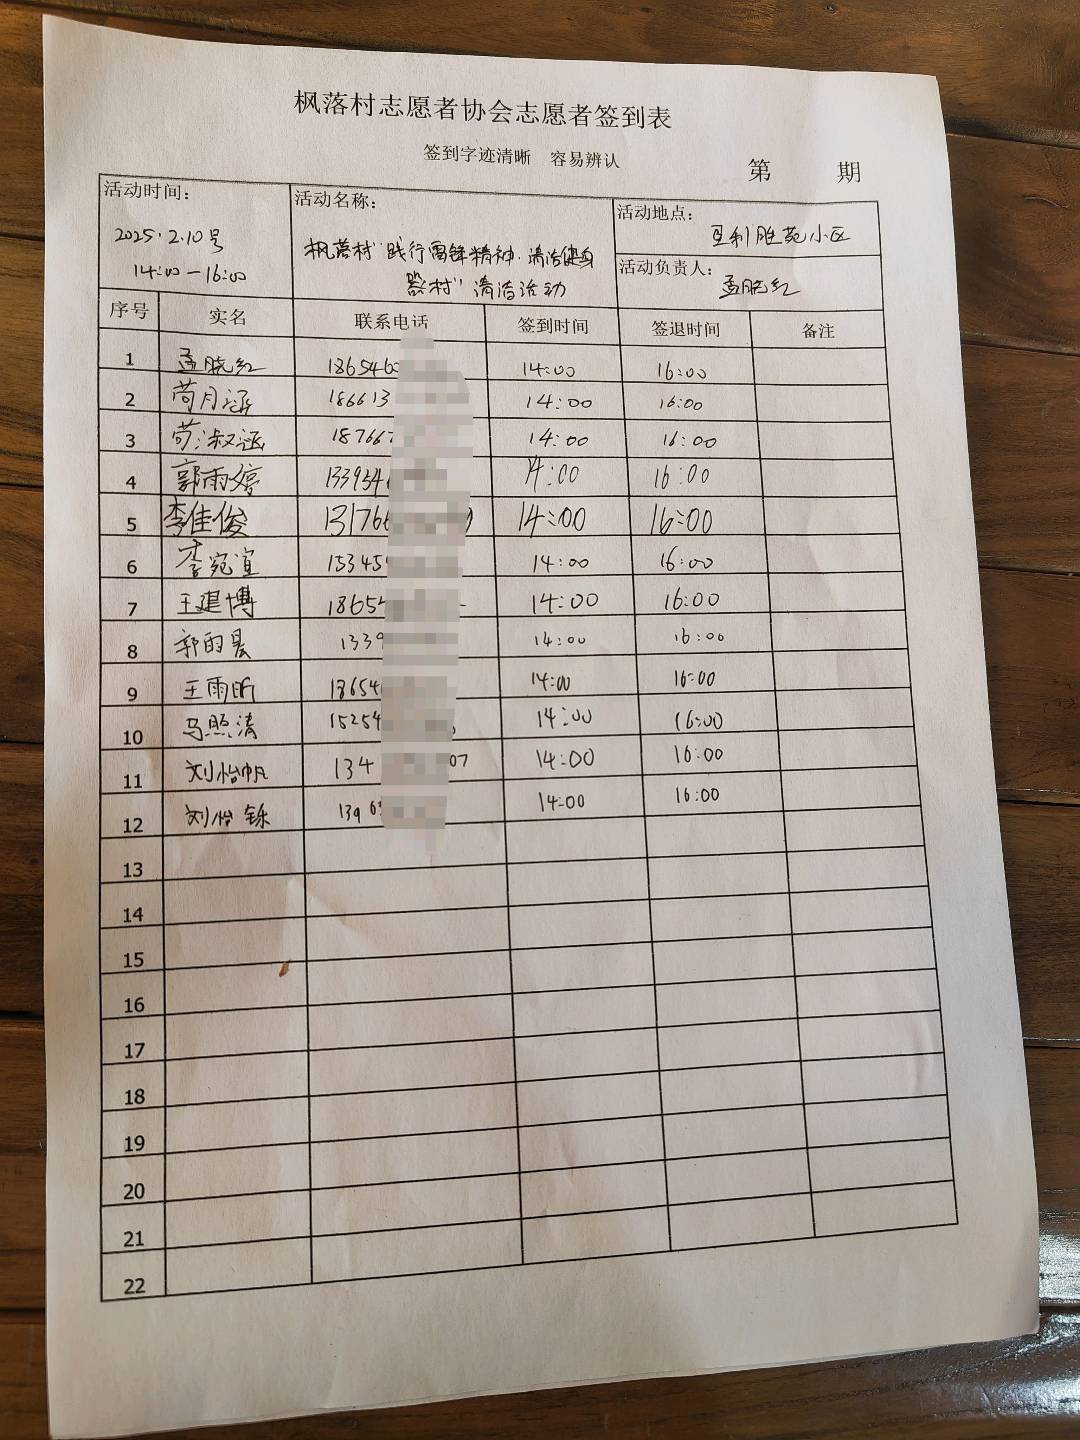 枫落村志愿者协会志愿者签到表
签到字迹清晰 容易辨认
第 期
活动时间： 活动名称： 活动地点：
2025.2.10号 枫落村"践行雷锋精神.清洁健身 亘利胜苑小区
14:00—16:00 器村"清洁活动 活动负责人：
孟晓红
序号 实名 联系电话 签到时间 签退时间 备注
1 孟晓红 186546 14:00 16:00
2 苘月涵 186613 14:00 16:00
3 苟淑涵 18766 14:00 16:00
4 郭雨婷 1339546 14:00 16:00
5 李佳俊 131766 9 14:00 16:00
6 李宛宜 15345 14:00 16:00
7 王建博 18654 14:00 16:00
8 郭雨晨 1339 14:00 16:00
9 王雨昕 18654 14:00 16:00
10 马照清 15254 14:00 16:00
11 刘怡帆 134 07 14:00 16:00
12 刘怡铄 1396 14:00 16:00
13
14
15
16
17
18
19
20
21
22